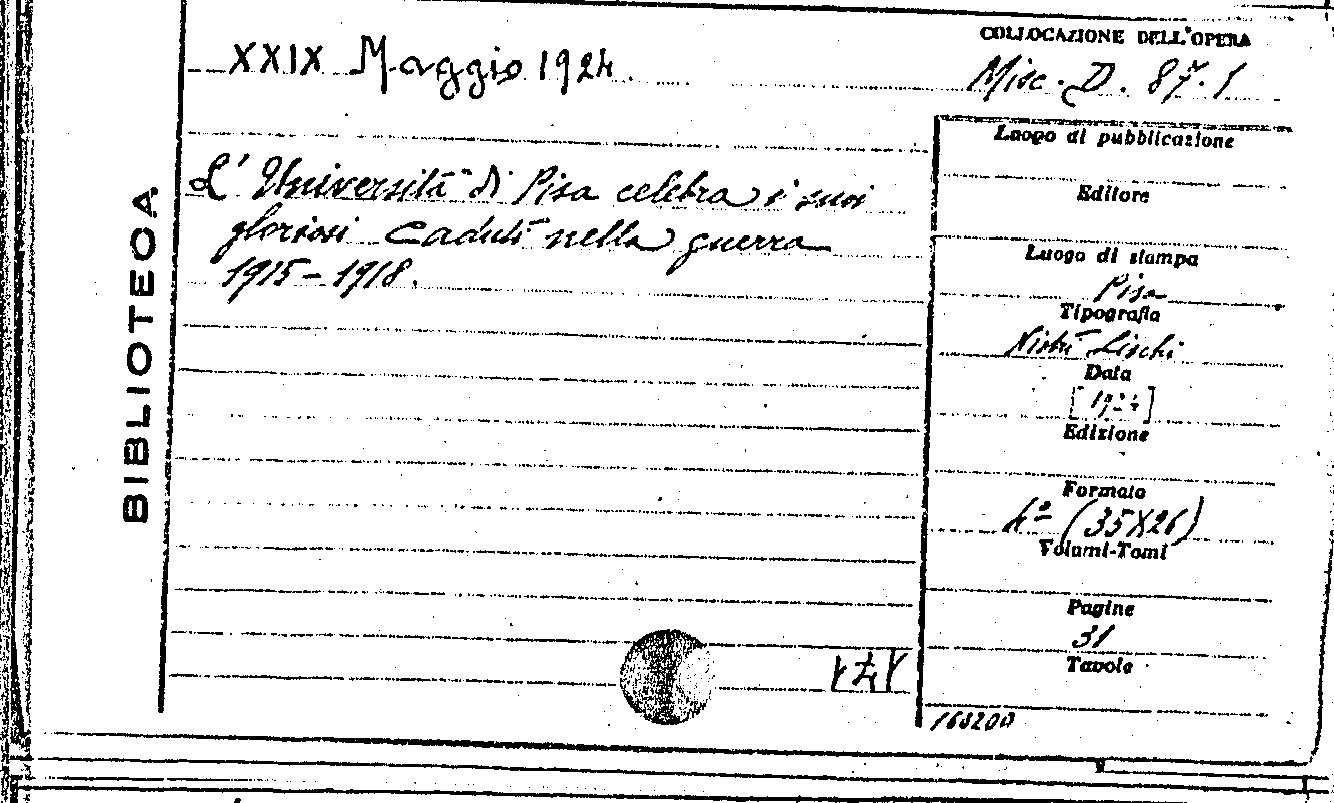 BIBLIOTECA
XXIX Maggio 1924.
L'Università di Pisa celebra i suoi
gloriosi Caduti nella guerra
1915-1918.
COLLOCAZIONE DELL'OPERA
Misc. D. 87.1
Luogo di pubblicazione
Editore
Luogo di stampa
Pisa
Tipografia
Nistri Lischi
Data
[1924]
Edizione
Formato
4º (35X26)
Volumi-Tomi
Pagine
31
Tavole
168200